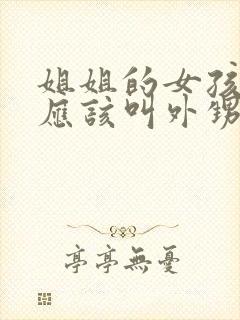 姐姐的女孩
应该叫外甥
亭亭無憂